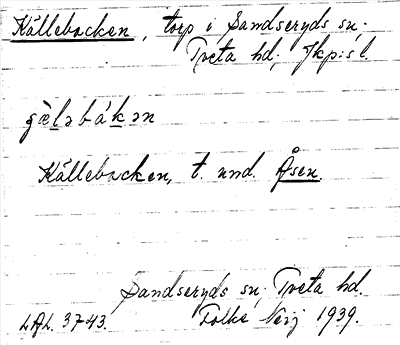 Källebacken, torp i Sandseryds sn.
Tveta hd; Jkp:s l.
gæ̀lǝbákǝn
Källebacken, t. und. Åsen.
Sandseryds sn; Tveta hd.
LAL. 3743. Folke 1939.